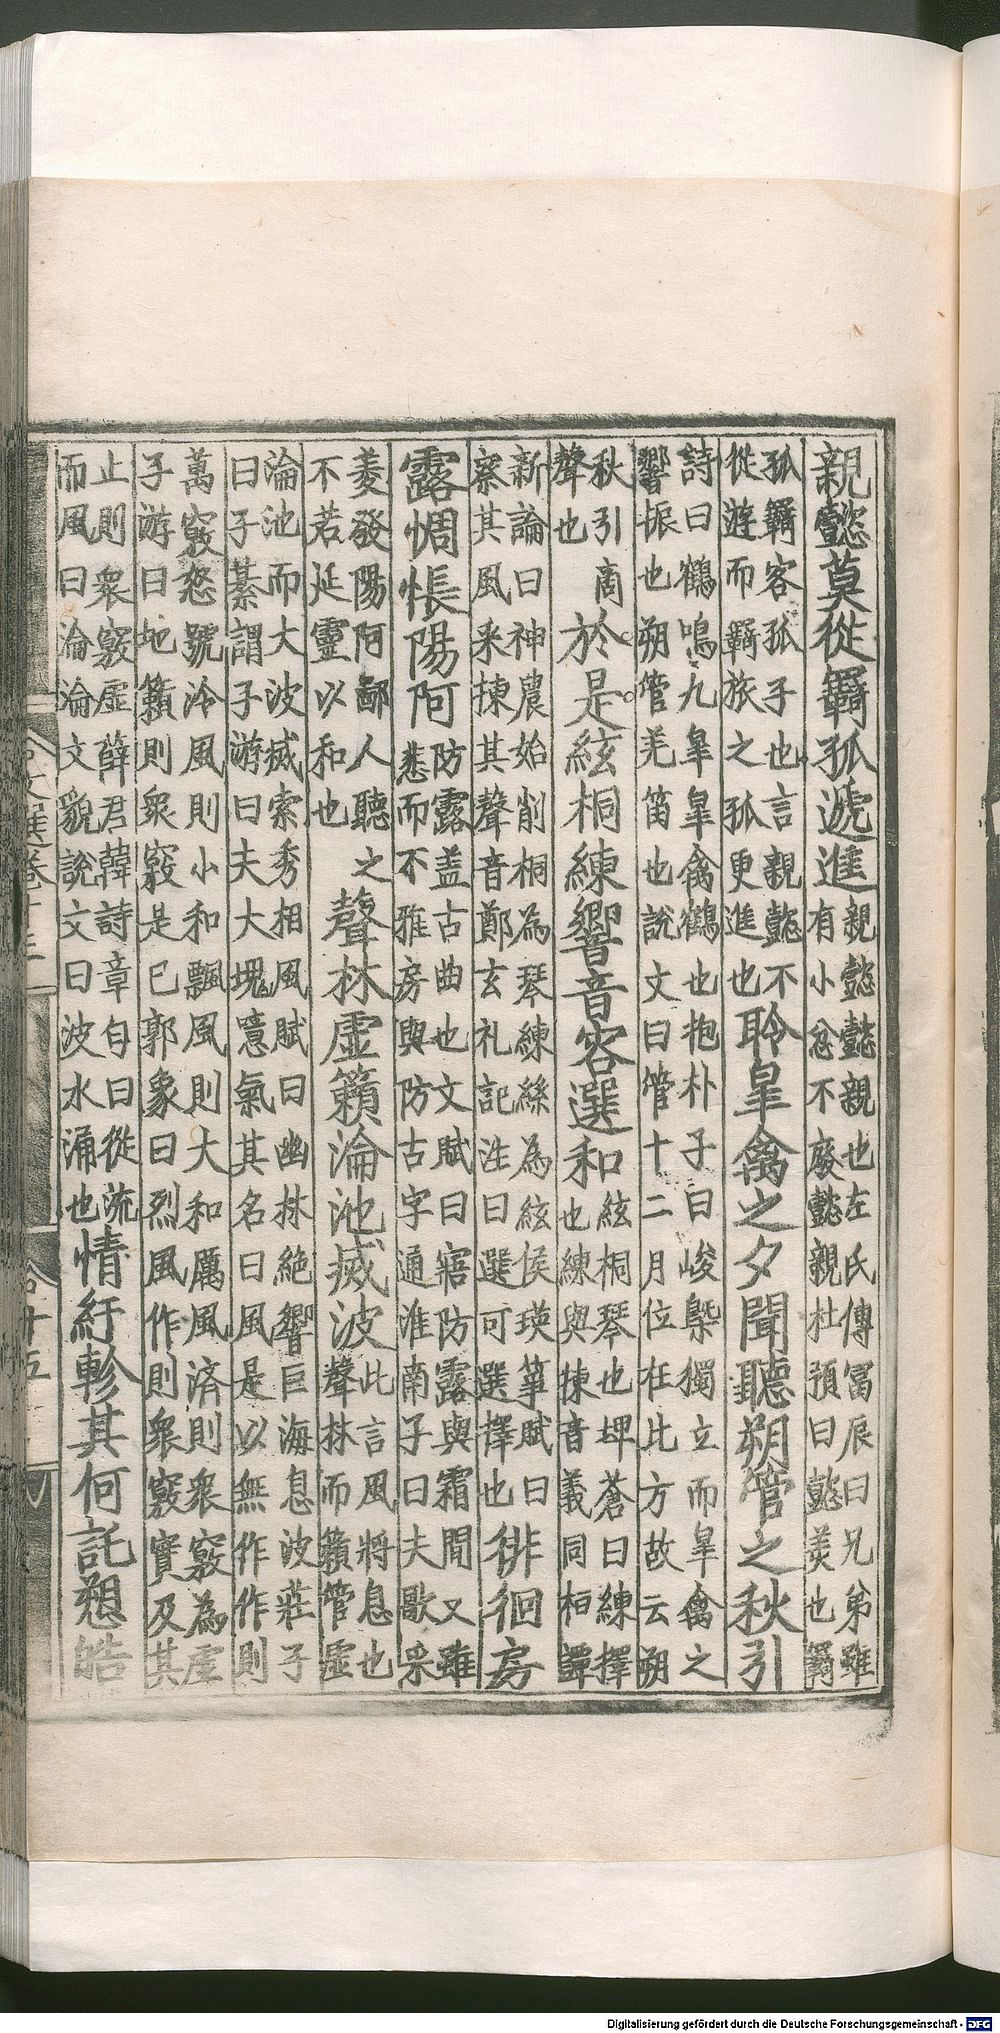 親懿莫從羈孤遞進親懿懿親也左氏傳冨辰曰兄弟雖
有小忿不廢懿親杜預曰懿美也羈
孤羈客孤子也言親懿不
從遊而羈旅之孤更進也聆皐禽之夕聞聽朔管之秋引
詩曰鶴鳴九皐皐禽鶴也抱朴子曰峻槩獨立而皐禽之
響振也朔管羌笛也說文曰管十二月位在北方故云朔
秋引商
聲也於是絃桐練響音容選和絃桐琴也埤蒼曰練擇
也練與揀音義同桓譚
新論曰神農始削桐為琴練絲為絃侯瑛箏賦曰
察其風采揀其聲音鄭玄礼記注曰選可選擇也徘徊房
露惆悵陽阿防露盖古曲也文賦曰寤防露與霜間又雖
悲而不雅房與防古字通淮南子曰夫歌采
菱發陽阿鄙人聽之
不若延靈以和也聲林虛籟淪池㓕波此言風將息也
聲林而籟管虛
淪池而大波㓕索秀相風賦曰幽林絶響巨海息波莊子
曰子綦謂子游曰夫大塊噫氣其名曰風是以無作作則
萬竅怒號泠風則小和飄風則大和厲風済則衆竅為虛
子游曰地籟則衆竅是已郭象曰烈風作則衆竅實及其
止則衆竅虛薛君韓詩章句曰從流
而風曰淪淪文貌說文曰波水涌也情紆軫其何託愬皓
文選卷十三
十五
Digitalisierung gefördert durch die Deutsche Forschungsgemeinschaft - DFG